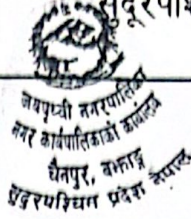 जयपृथ्वी नगरपालिका
नगर कार्यपालिकाको कार्यालय
चैनपुर, बझाङ्ग
सुदूरपश्चिम प्रदेश नेपाल